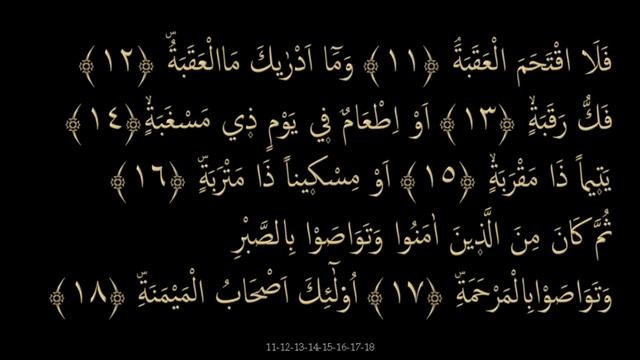 فَلَا اقْتَحَمَ الْعَقَبَةَۘ ﴿١١﴾ وَمَٓا اَدْرٰيكَ مَاالْعَقَبَةُۜ ﴿١٢﴾
فَكُّ رَقَبَةٍۙ ﴿١٣﴾ اَوْ اِطْعَامٌ ف۪ي يَوْمٍ ذ۪ي مَسْغَبَةٍۙ ﴿١٤﴾
يَت۪يماً ذَا مَقْرَبَةٍۙ ﴿١٥﴾ اَوْ مِسْك۪يناً ذَا مَتْرَبَةٍۜ ﴿١٦﴾
ثُمَّ كَانَ مِنَ الَّذ۪ينَ اٰمَنُوا وَتَوَاصَوْا بِالصَّبْرِ
وَتَوَاصَوْابِالْمَرْحَمَةِۜ ﴿١٧﴾ اُو۬لٰٓئِكَ اَصْحَابُ الْمَيْمَنَةِۜ ﴿١٨﴾
11-12-13-14-15-16-17-18